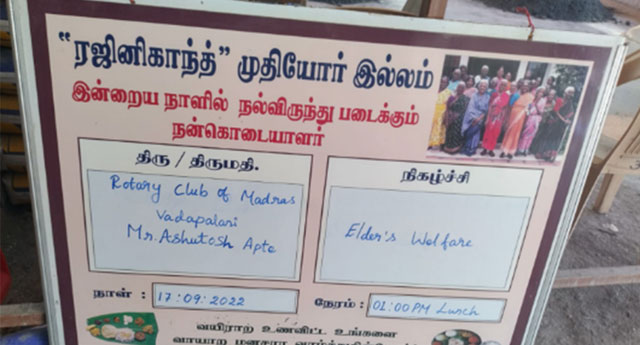 “ரஜினிகாந்த்” முதியோர் இல்லம்
இன்றைய நாளில் நல்விருந்து படைக்கும்
நன்கொடையாளர்
திரு / திருமதி.
Rotary Club of Madras
Vadapalani
Mr. Ashutosh Apte
நிகழ்ச்சி
Elder's Welfare
நாள் : 17:09:2022
நேரம் : 01:00PM Lunch
வயிராற உணவிட்ட உங்களை
வாயார மனதார